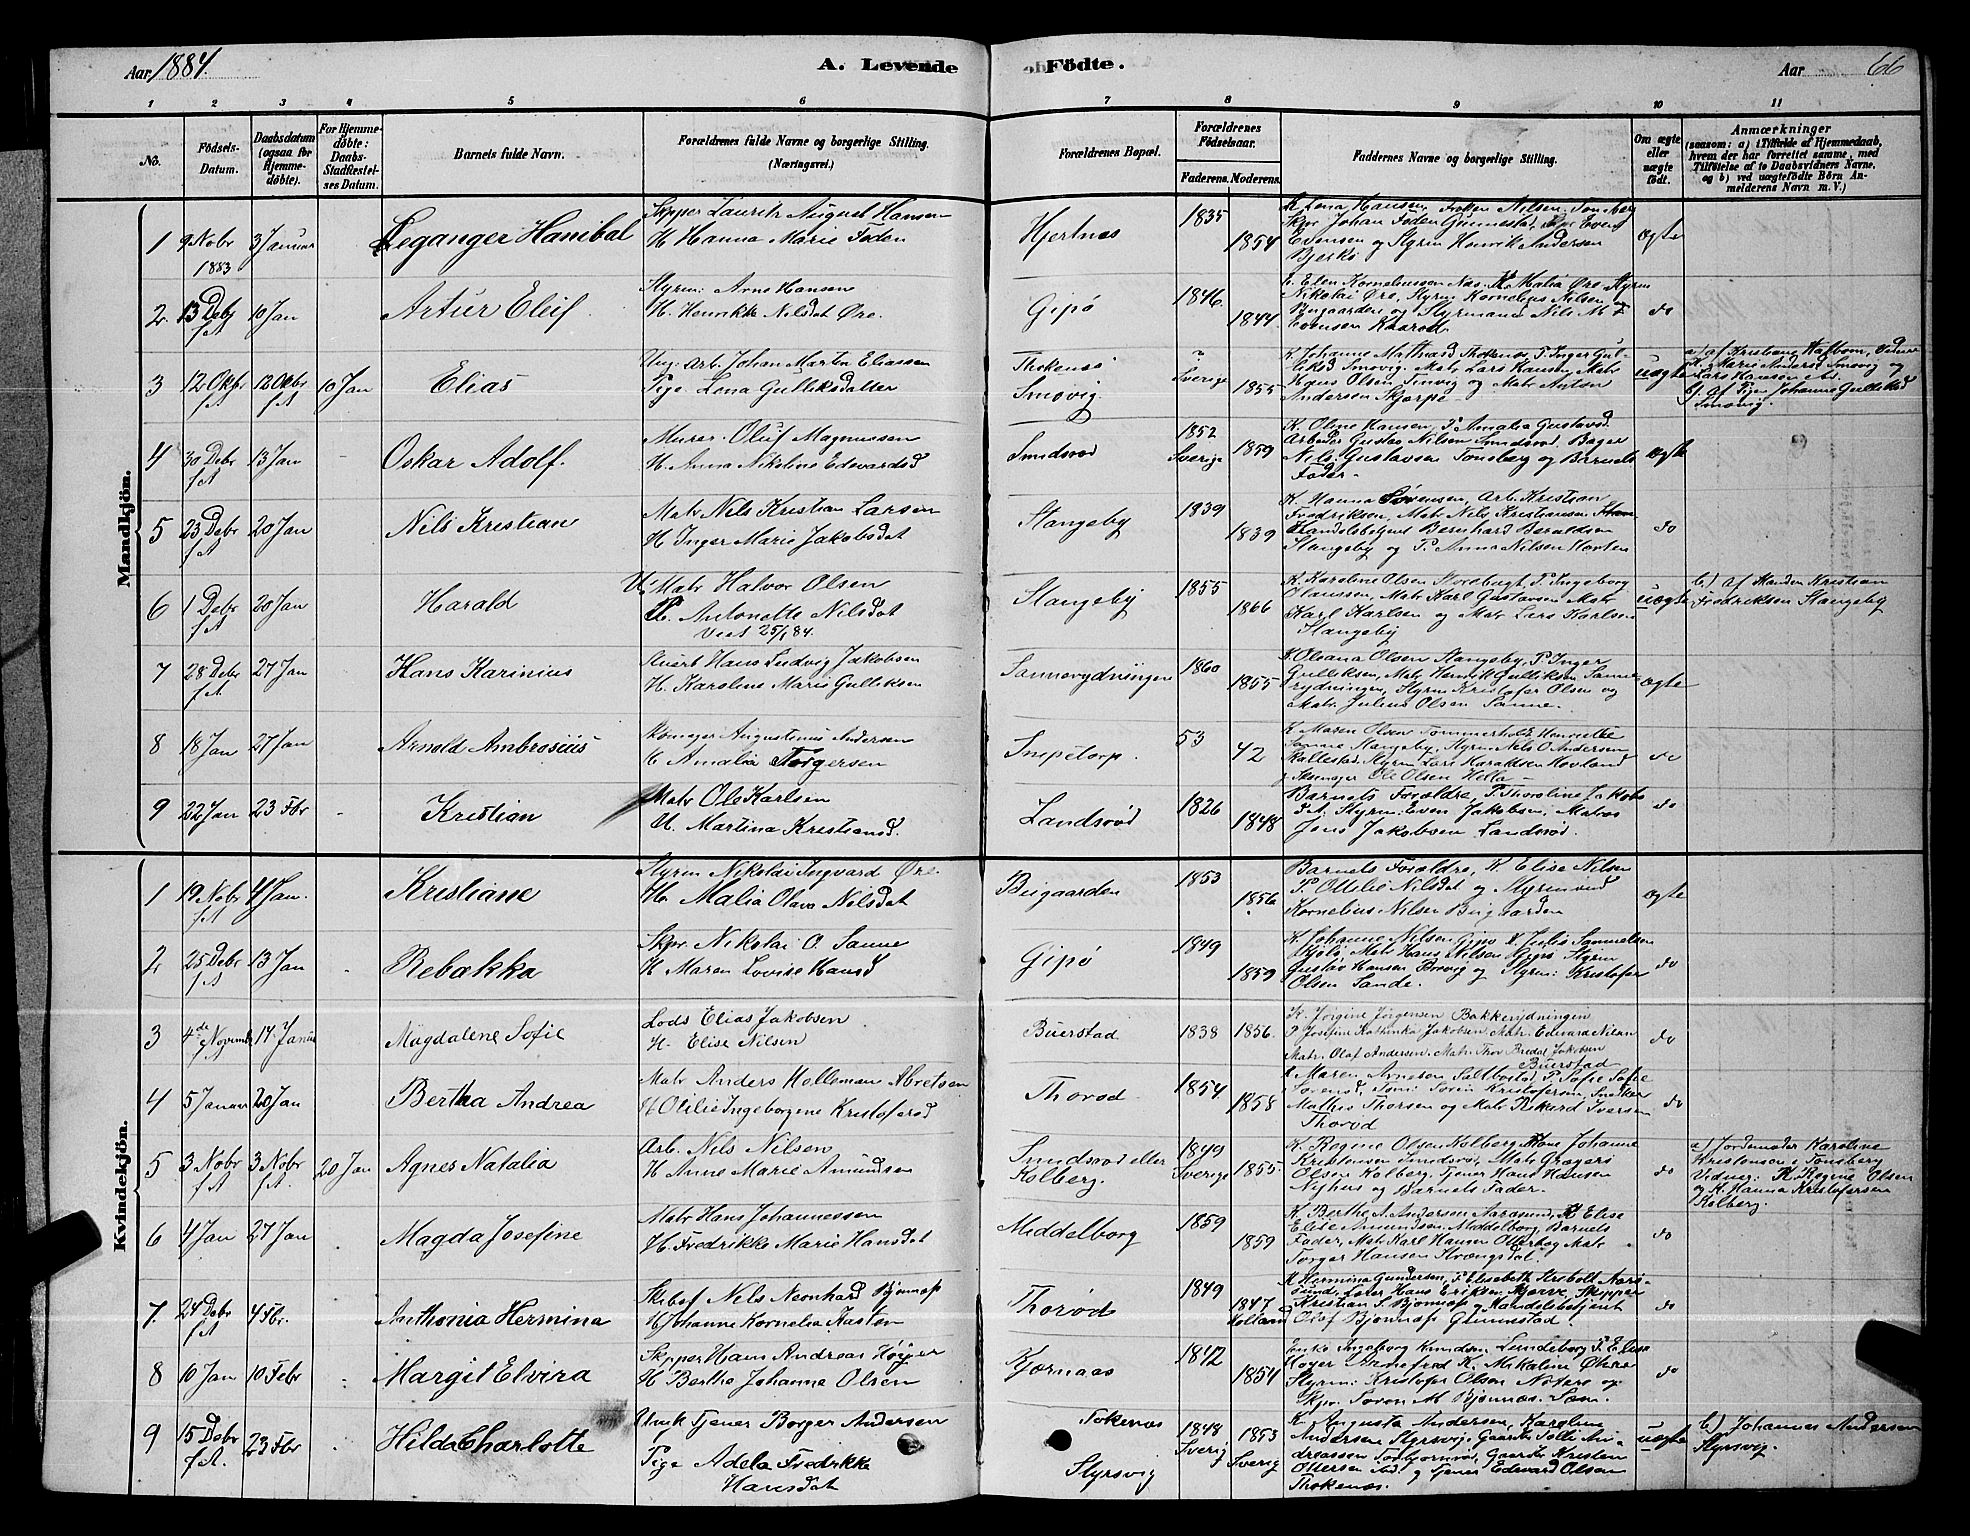 Aar 1884.
A. Levende Födte.
Aar 66
1 2 3 4 5 6 7 8 9 10 11
No.
Födsels-Datum.
Daabsdatum (ogsaa for Hjemmedöbte).
For Hjemmedöbte: Daabs-Stadfæstelses Datum.
Barnets fulde Navn.
Forældrenes fulde Navne og borgerlige Stilling. (Næringsvei.)
Forældrenes Bopæl.
Forældrenes Födselsaar.
Faderens. Moderens.
Faddernes Navne og borgerlige Stilling.
Om ægte eller uægte födt.
Anmærkninger
(saasom: a) i Tilfælde af Hjemmedaab, hvem der har forrettet samme, med Tilföielse af to Daabsvidners Navne, og b) ved uægtefödte Börn Anmelderens Navn m. V.)
Mandkjön.
1 9 Nobr 1883 3 Januar Leganger Hanibal
Skpper Lauritz August Hansen
H. Hanna Marie Foden
Hjertnæs 1835 1854
K. Lena Hansen, Nilsen Tønsberg
Skpr Johan Foden Even
Evensen og Styrm Henrik Andersen
Bjerkø
ægte
2 13 Debr f A 10 Jan Artur Eleif.
Styrm: Arne Hansen
H. Henrikke Nilsdat Øre.
Gipø 1846 1844
Malia Øre Styrm
Nikolai Øre, Styrm Kornelius Nilsen
Bugaarden og Styrmand Nils M
Evensen Kaarød
do
3 12 Okt. f A 12 Okbr f A 10 Jan Elias
Ung. Arb. Johan Martin Eliassen
Pige Lena Gulliksdatter
Thokenæs Smovig. Sverige 1855
K. Johanne Mathiasd Thokenæs P. Inger Gul-
liksd Smovig. Matr Lars Hansen, Matr
Hans Olsen Smvig og Matr Anton
Andersen Skjerpe
uægte
a) af Kristiane Hafbom, Vidner
K. Marie Andersd Smovig og
Lars Hansen ibd.
b) af Pigen Johanne Gulliksd
Smovig.
4 30 Debr f A 13 Jan Oskar Adolf.
Murer Oluf Magnussen
H. Anna Nikoline Edvardsd
Smidsrød 1852 Sverige 1859
K. Oline Hansen, P. Amalia Gustavsd.
Arbeider Gustav Nilsen Smidsrød, Bager
Nils Gustavsen Tønsberg og Barnets
Fader.
ægte
5 23 Debr f A 20 Jan Nils Kristian
Matr Nils Kristian Larsen
H Inger Marie Jakobsdat
Stangeby 1839 1839
K. Hanna Sørensen, Arb. Kristian
Fredriksen, Matr Nils Kristiansen
Handelsbetjent Bernhard Beraldsen
Stangeby og P. Anna Nilsen Hovten
do
6 1 Debr f A 20 Jan Harald
U. Matr Halvor Olsen
P. Antonette Nilsdat
Viet 25/1 84.
Stangeby 1855 1866
K. Karoline Olsen P. Ingeborg
Olaussen, Matr Karl Gustavsen Matr
Karl Karlsen og Matr Lars Karlsen
Stangeby
uægte
b.) af Manden Kristian
Fredriksen Stangeby
7 28 Debr f A 27 Jan Hans Karinius
Stuert Hans Ludvig Jakobsen
H. Karoline Marie Gulliksen
Sannerydningen 1860 1855
K. Oleana Olsen Stangeby, P. Inger
Gulliksen, Matr Henrik Gulliksen Sanne-
rydningen, Styrm Kristofer Olsen og
Matr. Julius Olsen Sanne.
ægte
8 18 Jan 27 Jan Arnold Ambrosius
Skomager Augustinus Andersen
H Amalia Torgersen
Snipetorp. 53 42
K Maren Olsen Henriette
Sanne Stangeby. Styrm Nils O Andersen
Rallestad, Styrm Lars Haraldsen Hovland
og Skomager Ole Olsen Hella
do
9 22 Jan 23 Fbr Kristian
Matr Ole Karlsen
H. Martina Kristiansd.
Landsrød 1826 1848
Barnets Forældre, P. Thoroline Jakobs
dt. Styrm Even Jakobsen, Matros
Jens Jakobsen Landsrød.
do
Kvindekjön.
1 19 Nobr f A 4 Jan. Kristiane
Styrm Nikolai Ingvard Øre.
Hr Malia Olava Nilsdat
Beigaarden 1853 1856
Barnets Forældre, K Elise Nilsen
P. Ottelie Nilsdat og Styrmand
Kornelius Nilsen Bugaarden
ægte
2 25 Debr f A 13 Jan Rebækka
Skpr. Nikolai O. Sanne
H Maren Lovise Hansd
Gipø 1849 1859
K. Johanne Nilsen Gipø K Julia Samuelsen
Matr Hans Nilsen Gipø Styrm
Gustav Hansen Brevig og Styrm: Kristofer
Olsen Sande.
do
3 4de Novemb 17 Januar Magdalene Sofie
Lods Elias Jakobsen
H. Elise Nilsen
Buerstad 1838 1856.
K. Jørgine Jørgensen Bakkerydningen
P Josefine Kathinka Jakobsen, Matr. Edvard Nilsen
Matr. Olaf Andersen. Matr. Thor Bredal Jakobsen
Buerstad
do
4 5 Januar 20 Jan Bertha Andrea
Matr Anders Kolleman Abretsen
H Otilie Ingeborgene Kristofersd
Thorød 1854 1858
K Maren Arnesen Saltbostad, P. Sofie Sofie
Sørensd, Tøm: Søren Kristofersen, Snedker
Mathis Thorsen og Matr Rikard Iversen
Thorød
do
5 3 Nobr f A 3 Nobr f A. 20 Jan Agnes Natalia
Arb. Nils Nilsen
H Anne Marie Amundsen
Smidsrød eller Kolberg. 1849 Sverige 1855
K. Regine Olsen Kolberg Kone Johanne
Kristensen Smidsrød, Matr Gregers
Olsen Kolberg, Tjener Hans Hansen
Nyhus og Barnets Fader.
do
a) Jordemoder Karoline
Kristensen i Tønsberg
Vidner: K Regine Olsen
og K. Hanna Kristofersen
Kolberg.
6 4 Jan 27 Jan Magda Josefine
Matr Hans Johannessen
H. Fredrikke Marie Hansdat
Middelborg 1859 1859
K. Berthe A. Andersen Aarøsund, K Elise
Elise Amundsen, Middelborg, Barnets
Fader, Matr Karl Hansen Otterbog Matr
Torger Hansen Kvængsdal
do
7. 24 Debr f A 4 Fbr. Anthonia Hermina
Skibsf Nils Neonhard Bjønnæss
H Johanne Kornelia Kasten
Thorød 1849 1847 Holland
K Hermina Gundersen, P. Elisabeth Aarø-
sund, Loter Hans Eriksen Kjærve, Skipper
Kristian P. Bjønnæss og Handelsbetjent
Olaf Bjønnæss Grimestad.
do
8 10 Jan 10 Febr Margit Elvira
Skpper Hans Andreas Høyer
H Berthe Johanne Olsen
Kjærnaas 1842 1854
Enke Ingeborg Knudsen Lindeborg P. Elise
Høyer K. Mekaline Øhre
Styrm: Kristofer Olsen Nøtere og
Skpr. Søren M Bjønnæs. Sæm
do
9 15 Debr f A. 23 Fbr Hilda Charlotte
Ungk Tjener Borger Andersen
Pige Adela Fredrikke
Hansdat
Tokenæs Styrsvig 1848 Sverig 1853 Sverig
K Augusta Andersen, Karoline
Andersen Styrsvig, Gaardbr Salli An-
dreassen Torbjørnrød, Gaardbr Kristen
Ottersen og Tjener Edevard Olsen
Thokenæs.
uægte
b) Johannes Andersen
Styrsvig.